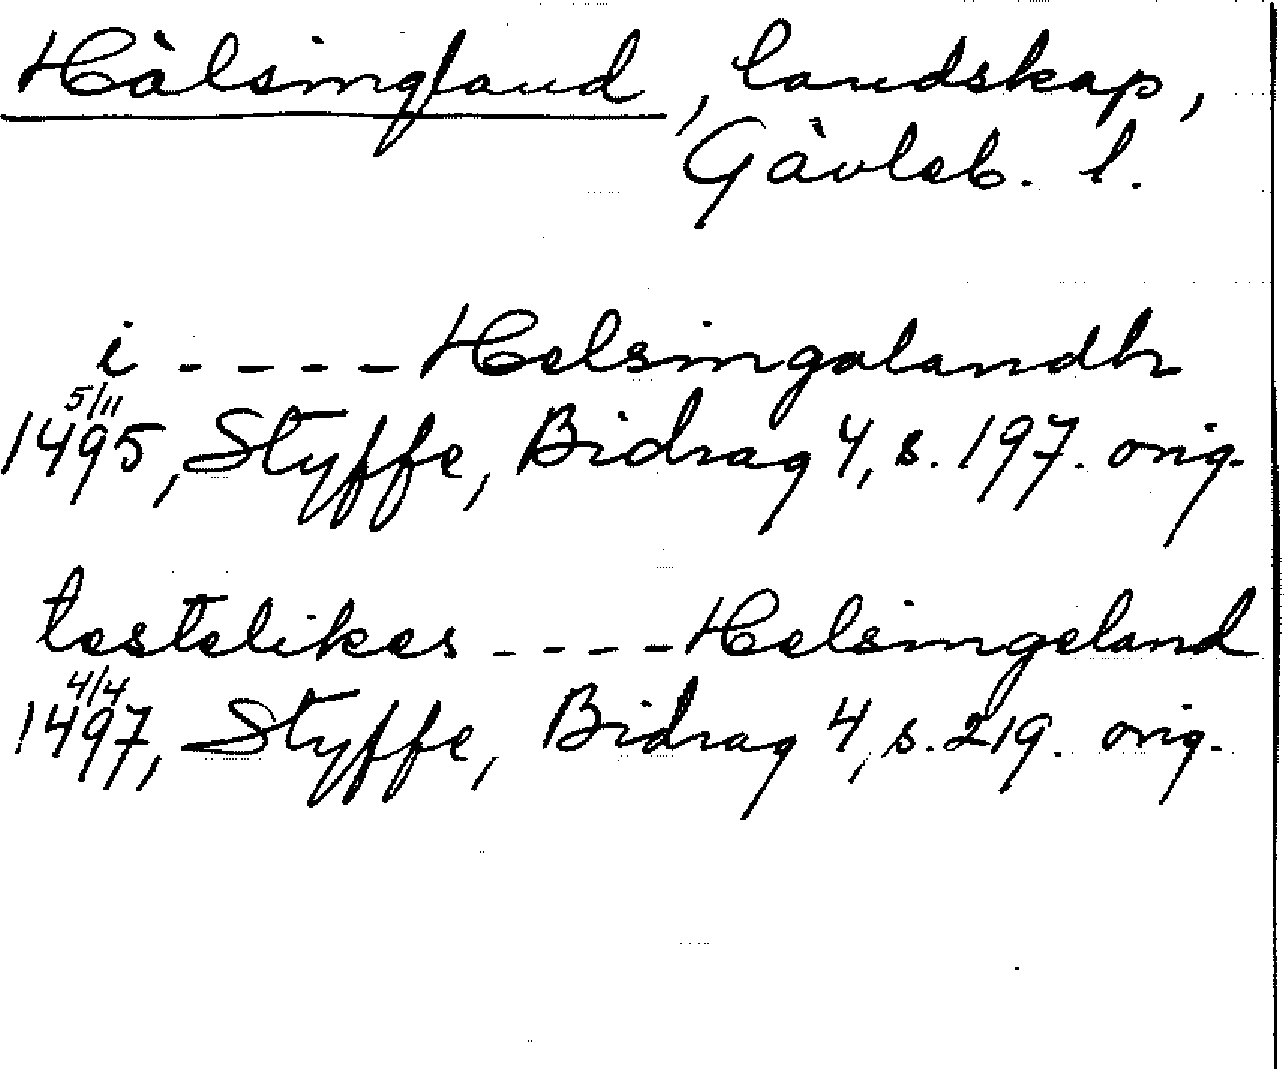 Hälsingland, landskap,
Gävleb. l.
i - - - - Helsingalandh
5/11
1495, Styffe, Bidrag 4, s. 197. orig.
testelikes - - - - Helsingeland
4/4
1497, Styffe, Bidrag 4, s. 219. orig.